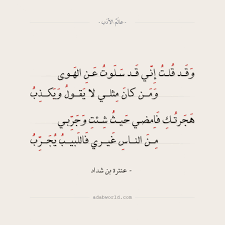 - عالم الأدب -
وَقَد قُلتُ إِنّي قَد سَلَوتُ عَنِ الهَوى
وَمَن كانَ مِثلي لا يَقولُ وَيَكذِبُ
هَجَرتُكِ فَاِمضي حَيثُ شِئتِ وَجَرِّبي
مِنَ الناسِ غَيري فَاللَبيبُ يُجَرِّبُ
- عنترة بن شداد -
adabworld.com